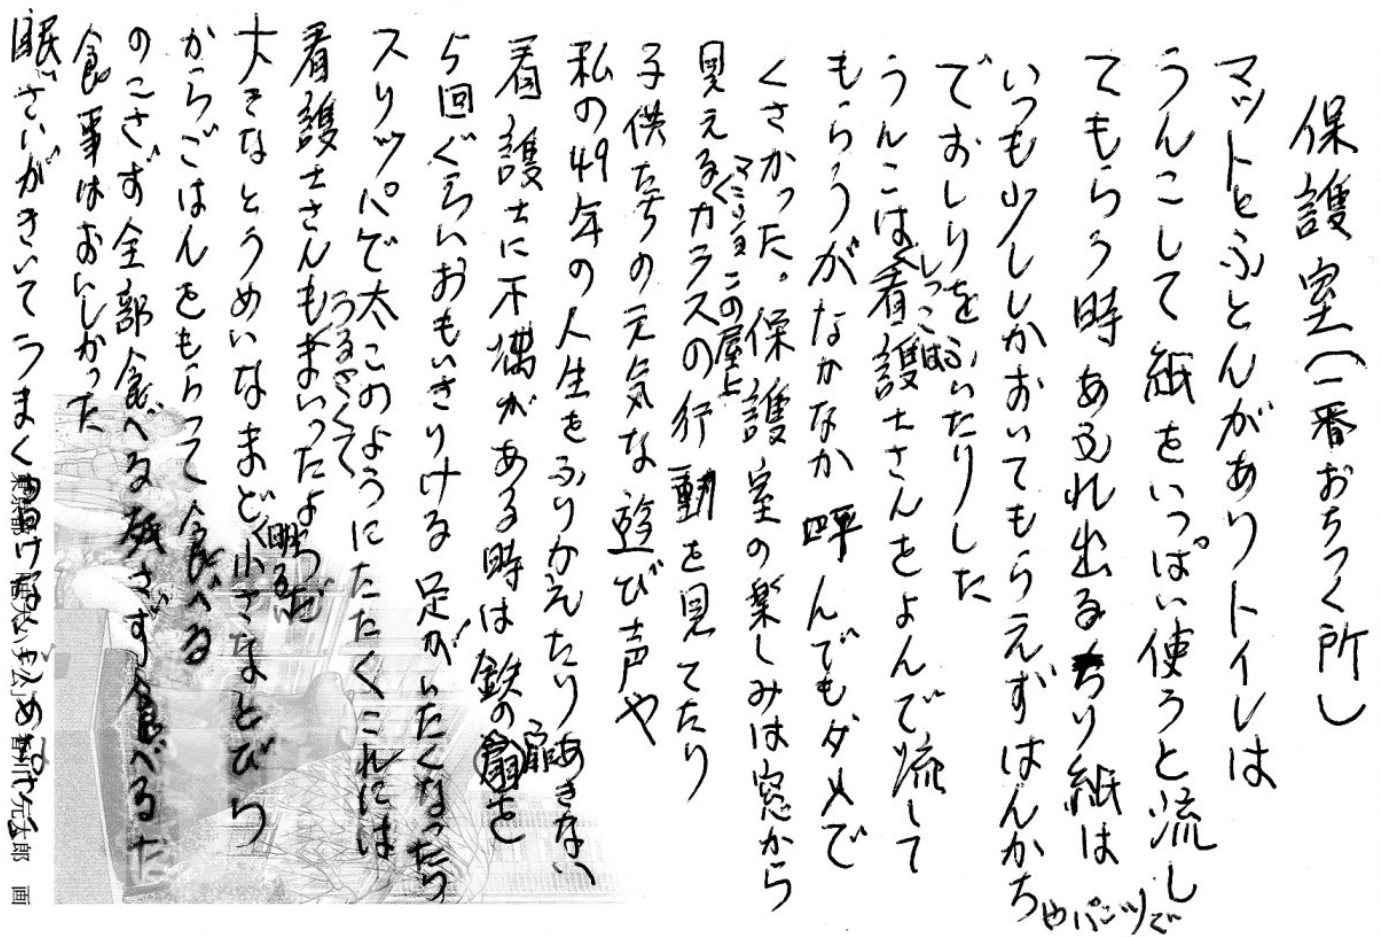 保護室(一番おちつく所し
マットとふとんがありトイレは
うんこして紙をいっぱい使うと流し
てもらう時あふれ出るちり紙は
いつも少ししかおいてもらえずはんかち
やパンツで
でおしりをふいたりした
しっこは
うんこは看護士さんをよんで流して
もらうがなかなか呼んでもダメで
くさかった。保護室の楽しみは窓から
マミーヨこの屋上
見えるカラスの行動を見てたり
子供たちの元気な遊び声や
私の49年の人生をふりかえたりあきない
看護士に不満がある時は鉄の扉を
扉
5回ぐらいおもいきりける足がいたくなったら
スリッパで太このようにたたくこれには
うるさくて
看護士さんもまいったようだ
明るい
大きなとうめいなまど小さなとびら
からごはんをもらって食べる
のこさず全部食べる残さず食べるた
食事はおいしかった
眠ざいがきいてうまく
元太郎 画